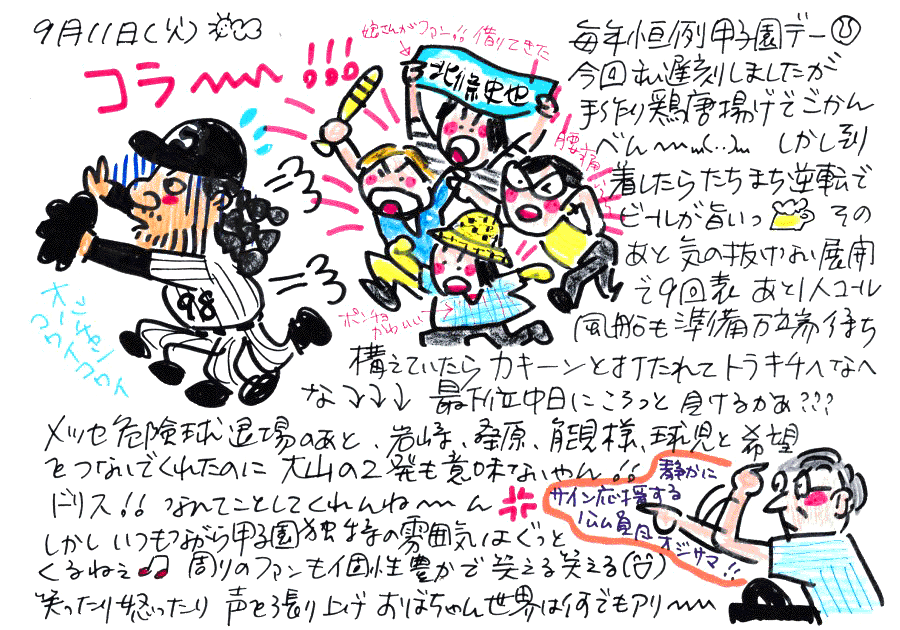 9月11日(火)
コラ〜〜 !!!
嫁さんがファン!! 借りてきた
北條史也
腰痛
98
オバチャン
ワイワイ
ポンチョ
かわいい
毎年恒例甲子園デー
今回も遅刻しましたが
まったり鶏唐揚げでごかん
べん〜m(..)m しかし到
着したらたちまち逆転で
ビールが旨いっ その
あと 気の抜けない展開
で9回表 あと1人コール
風船も準備万端待ち
構えていたら カキーンと打たれてトラキチヘなヘ
な↓↓↓ 最下位中日にころっと負けるかぁ???
メッセ危険球退場のあと、岩崎、桑原、能見様、球児と希望
をつないでくれたのに 大山の2発も意味ないやん!!
ドリス!! なんてことしてくれんね〜ん
しかし いつもながら甲子園独特の雰囲気はぐっと
くるねぇ♫ 周りのファンも個性豊かで笑える笑える
笑ったり怒ったり 声を張り上げ おばちゃん世界は何でもアリ〜〜
静かに
サイン応援する
公務員風
オジサマ!!